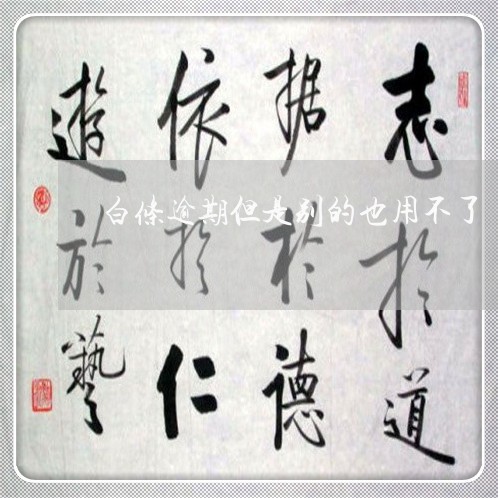 志於道
据於德
依於仁
遊於藝
白條逾期但是别的也用不了